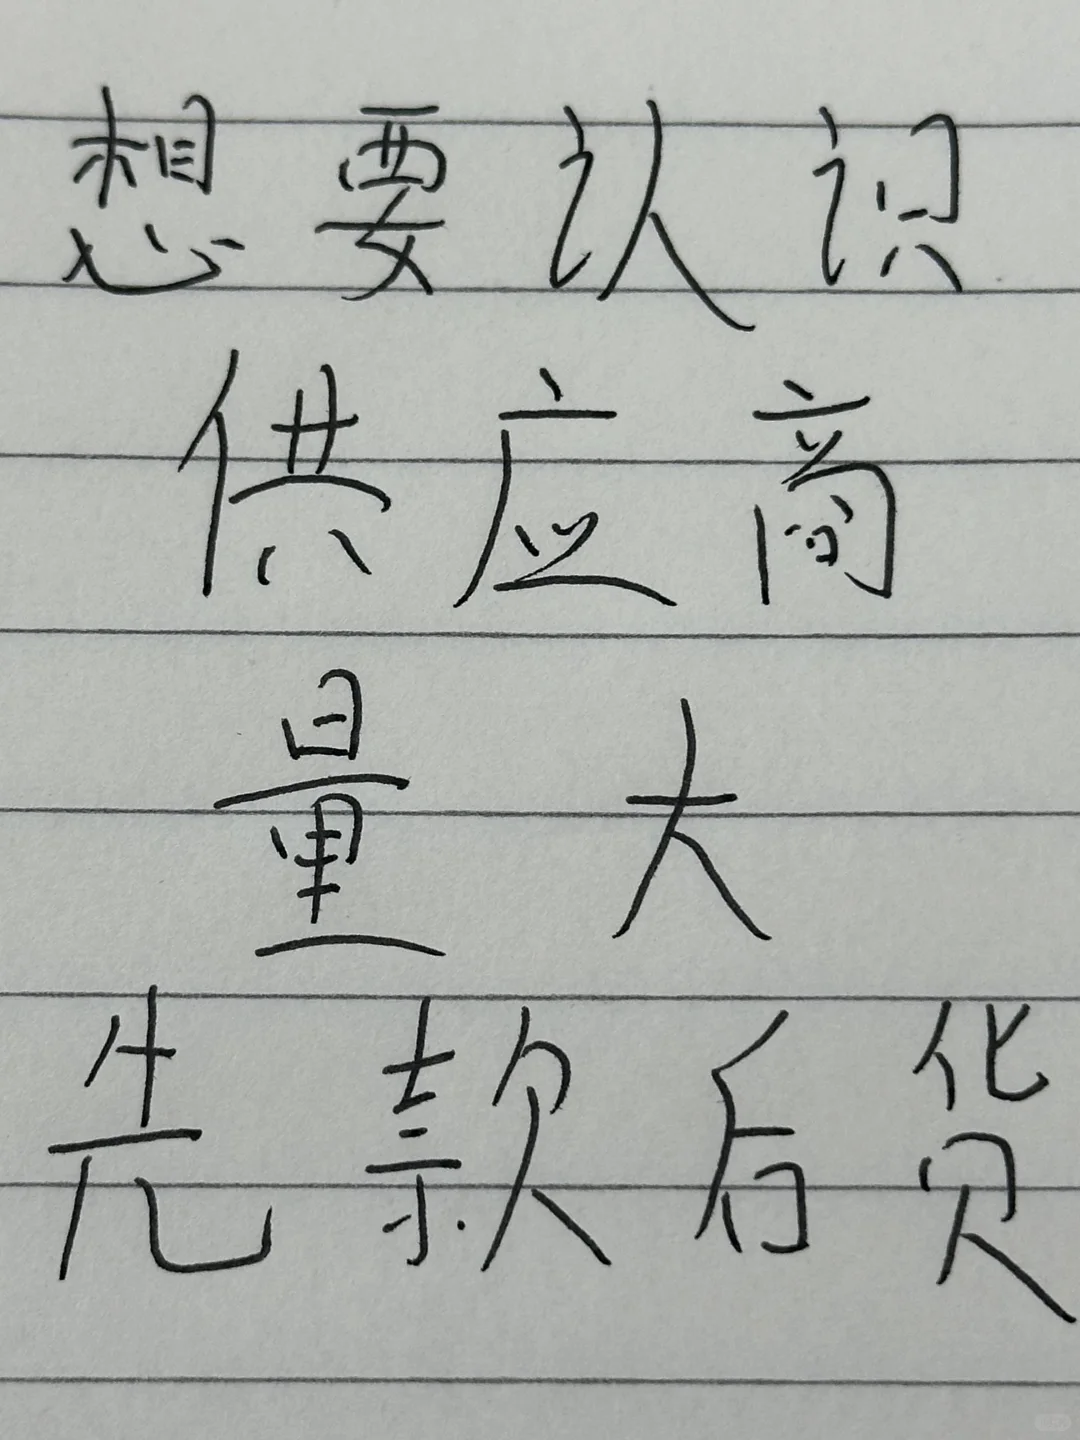 想要认识
供应商
量大
先款后货